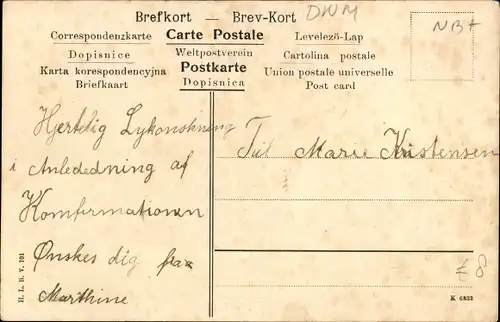 Brefkort — Brev-Kort
DWM
NB+
Correspondenzkarte Carte Postale Levelező-Lap
Dopisnice Weltpostverein Cartolina postale
Karta korespondencyjna Postkarte Union postale universelle
Briefkaart Dopisnica Post card
Hjertelig Lykonskning
i Anledning af
Komfirmationen
Ønskes dig fra
Marthine
Til Marie Kristensen
£8
H. L. B. V. 101
K 6832